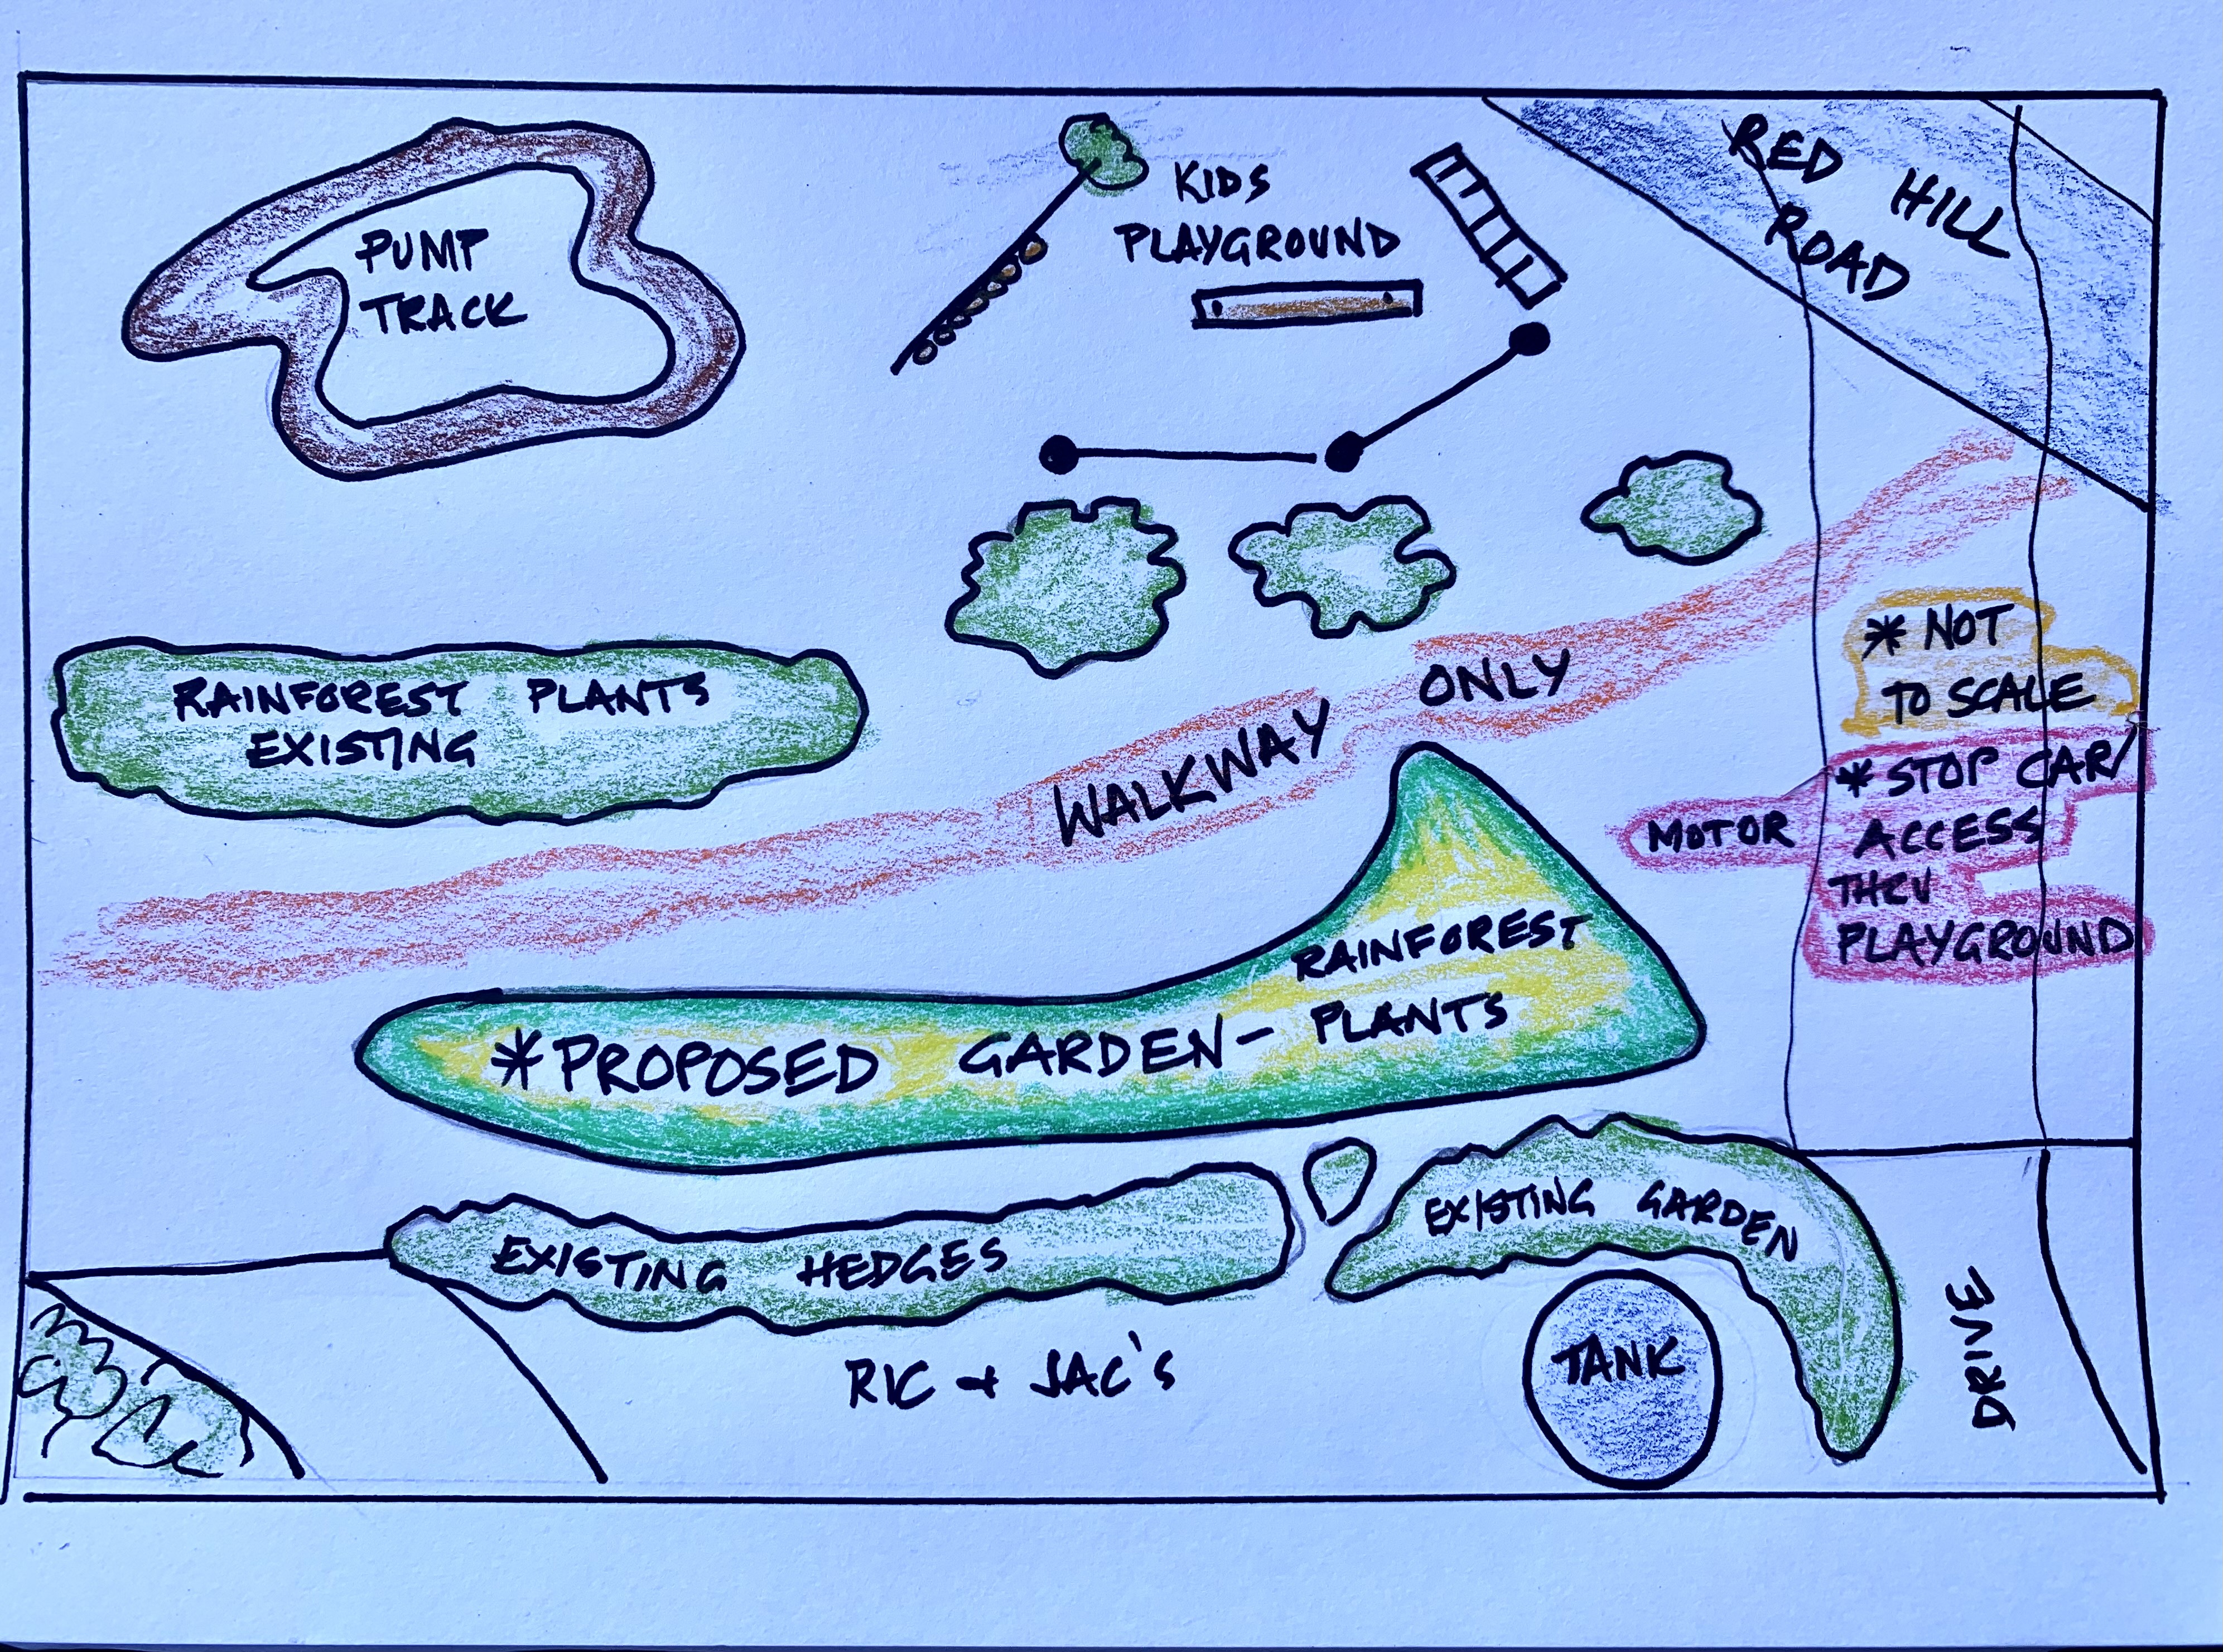 PUMP
TRACK
KIDS
PLAYGROUND
RED HILL
ROAD
RAINFOREST PLANTS
EXISTING
WALKWAY ONLY
* NOT
TO SCALE
* STOP CAR/
MOTOR ACCESS
THRU
PLAYGROUND
RAINFOREST
*PROPOSED GARDEN- PLANTS
EXISTING HEDGES
EXISTING GARDEN
RIC + JAC'S
TANK
DRIVE